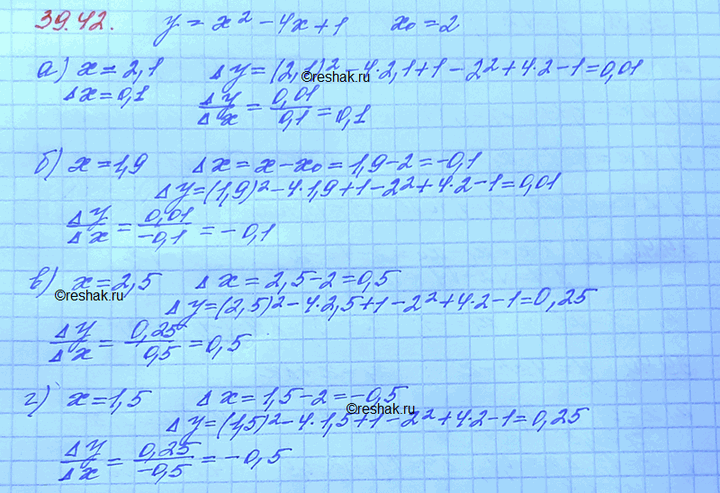 39.42. y = x² - 4x + 1 x₀ = 2
а) x = 2,1 Δy = (2,1)² - 4·2,1 + 1 - 2² + 4·2 - 1 = 0,01
©reshak.ru
Δx = 0,1 Δy/Δx = 0,01/0,1 = 0,1
б) x = 1,9 Δx = x - x₀ = 1,9 - 2 = -0,1
Δy = (1,9)² - 4·1,9 + 1 - 2² + 4·2 - 1 = 0,01
Δy/Δx = 0,01/-0,1 = -0,1
в) x = 2,5 Δx = 2,5 - 2 = 0,5
©reshak.ru
Δy = (2,5)² - 4·2,5 + 1 - 2² + 4·2 - 1 = 0,25
Δy/Δx = 0,25/0,5 = 0,5
г) x = 1,5 Δx = 1,5 - 2 = -0,5
©reshak.ru
Δy = (1,5)² - 4·1,5 + 1 - 2² + 4·2 - 1 = 0,25
Δy/Δx = 0,25/-0,5 = -0,5